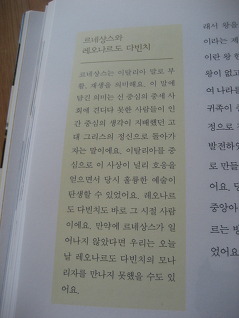 르네상스와
레오나르도 다빈치
르네상스는 이탈리아 말로 부
활, 재생을 의미해요. 이 말에
담긴 의미는 신 중심의 중세 사
회에 견디다 못한 사람들이 인
간 중심의 생각이 지배했던 고
대 그리스의 정신으로 돌아가
자는 말이에요. 이탈리아를 중
심으로 이 사상이 널리 호응을
얻으면서 당시 훌륭한 예술이
탄생할 수 있었어요. 레오나르
도 다빈치도 바로 그 시절 사람
이에요. 만약에 르네상스가 일
어나지 않았다면 우리는 오늘
날 레오나르도 다빈치의 모나
리자를 만나지 못했을 수도 있
어요.
래서 왕을
이라는 제
이란 왕
왕이 없고
여 나라를
귀족이
정으로
발전하
로 만들
어요. 당
중앙아
르는 방
었어요